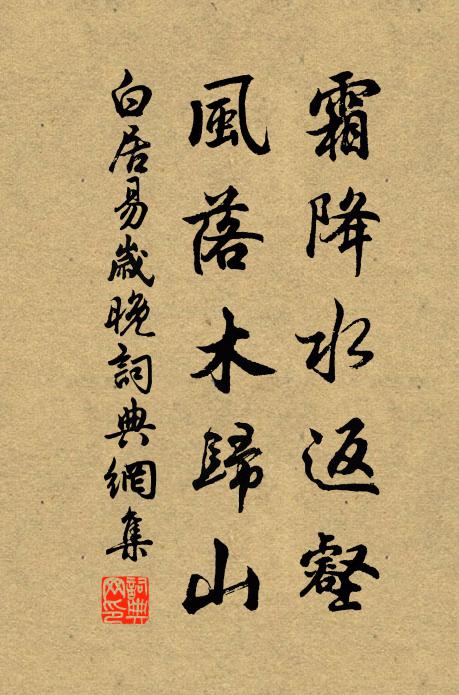 霜降水返壑
風落木歸山
白居易歲晚詞典網集
詞典网印